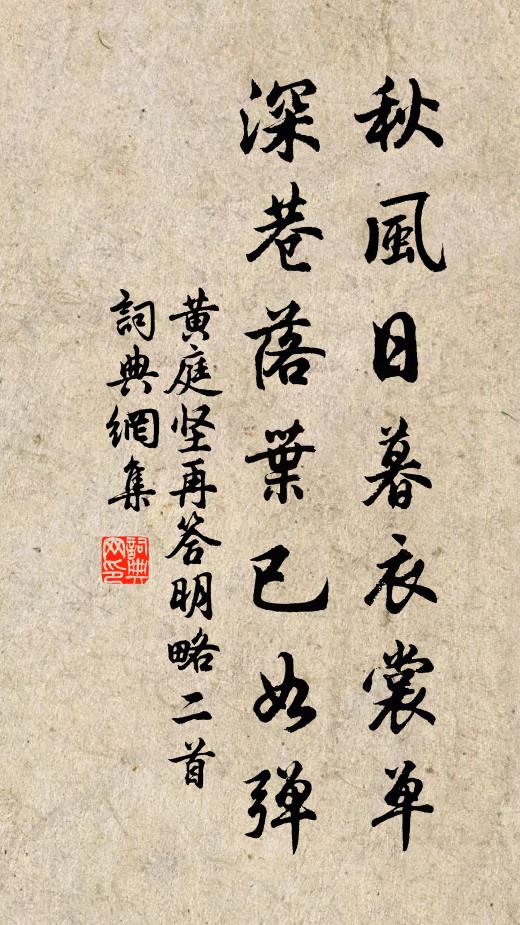 秋風日暮衣裳单
深巷落葉已如弹
黄庭坚再答明略二首
詞典網集
詞典网印